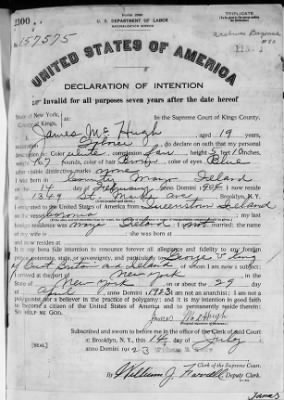 TRIPLICATE
U. S. DEPARTMENT OF LABOR
NATURALIZATION SERVICE
157575
UNITED STATES OF AMERICA
DECLARATION OF INTENTION
Invalid for all purposes seven years after the date hereof
State of New York,
County of Kings,
In the Supreme Court of Kings County,
James Mc Hugh, aged 19 years,
occupation, do declare on oath that my personal
description is: Color white, complexion, height 5 feet inches,
weight pounds, color of hair Brown, color of eyes Blue
other visible distinctive marks none
I was born in County Mayo Ireland
on the 14 day of, anno Domini; I now reside
at 1349 St. Marks Ave, Brooklyn, N. Y.
I emigrated to the United States of America from Queenstown Ireland
on the vessel; my last
foreign residence was Mayo Ireland; I am not married; the name
of my wife is; she was born at
and now resides at
It is my bona fide intention to renounce forever all allegiance and fidelity to any foreign
prince, potentate, state, or sovereignty, and particularly to George V King
of Great Britain and Ireland, of whom I am now a subject; I
arrived at the port of New York, in the
State of New York, on or about the 29 day
of April, anno Domini 1923; I am not an anarchist; I am not a
polygamist nor a believer in the practice of polygamy; and it is my intention in good faith
to become a citizen of the United States of America and to permanently reside therein:
SO HELP ME GOD.
James McHugh
Subscribed and sworn to before me in the office of the Clerk of said Court
at Brooklyn, N. Y., this day of July
anno Domini 1923
[SEAL]
Clerk of the Supreme Court.
By William J., Deputy Clerk.